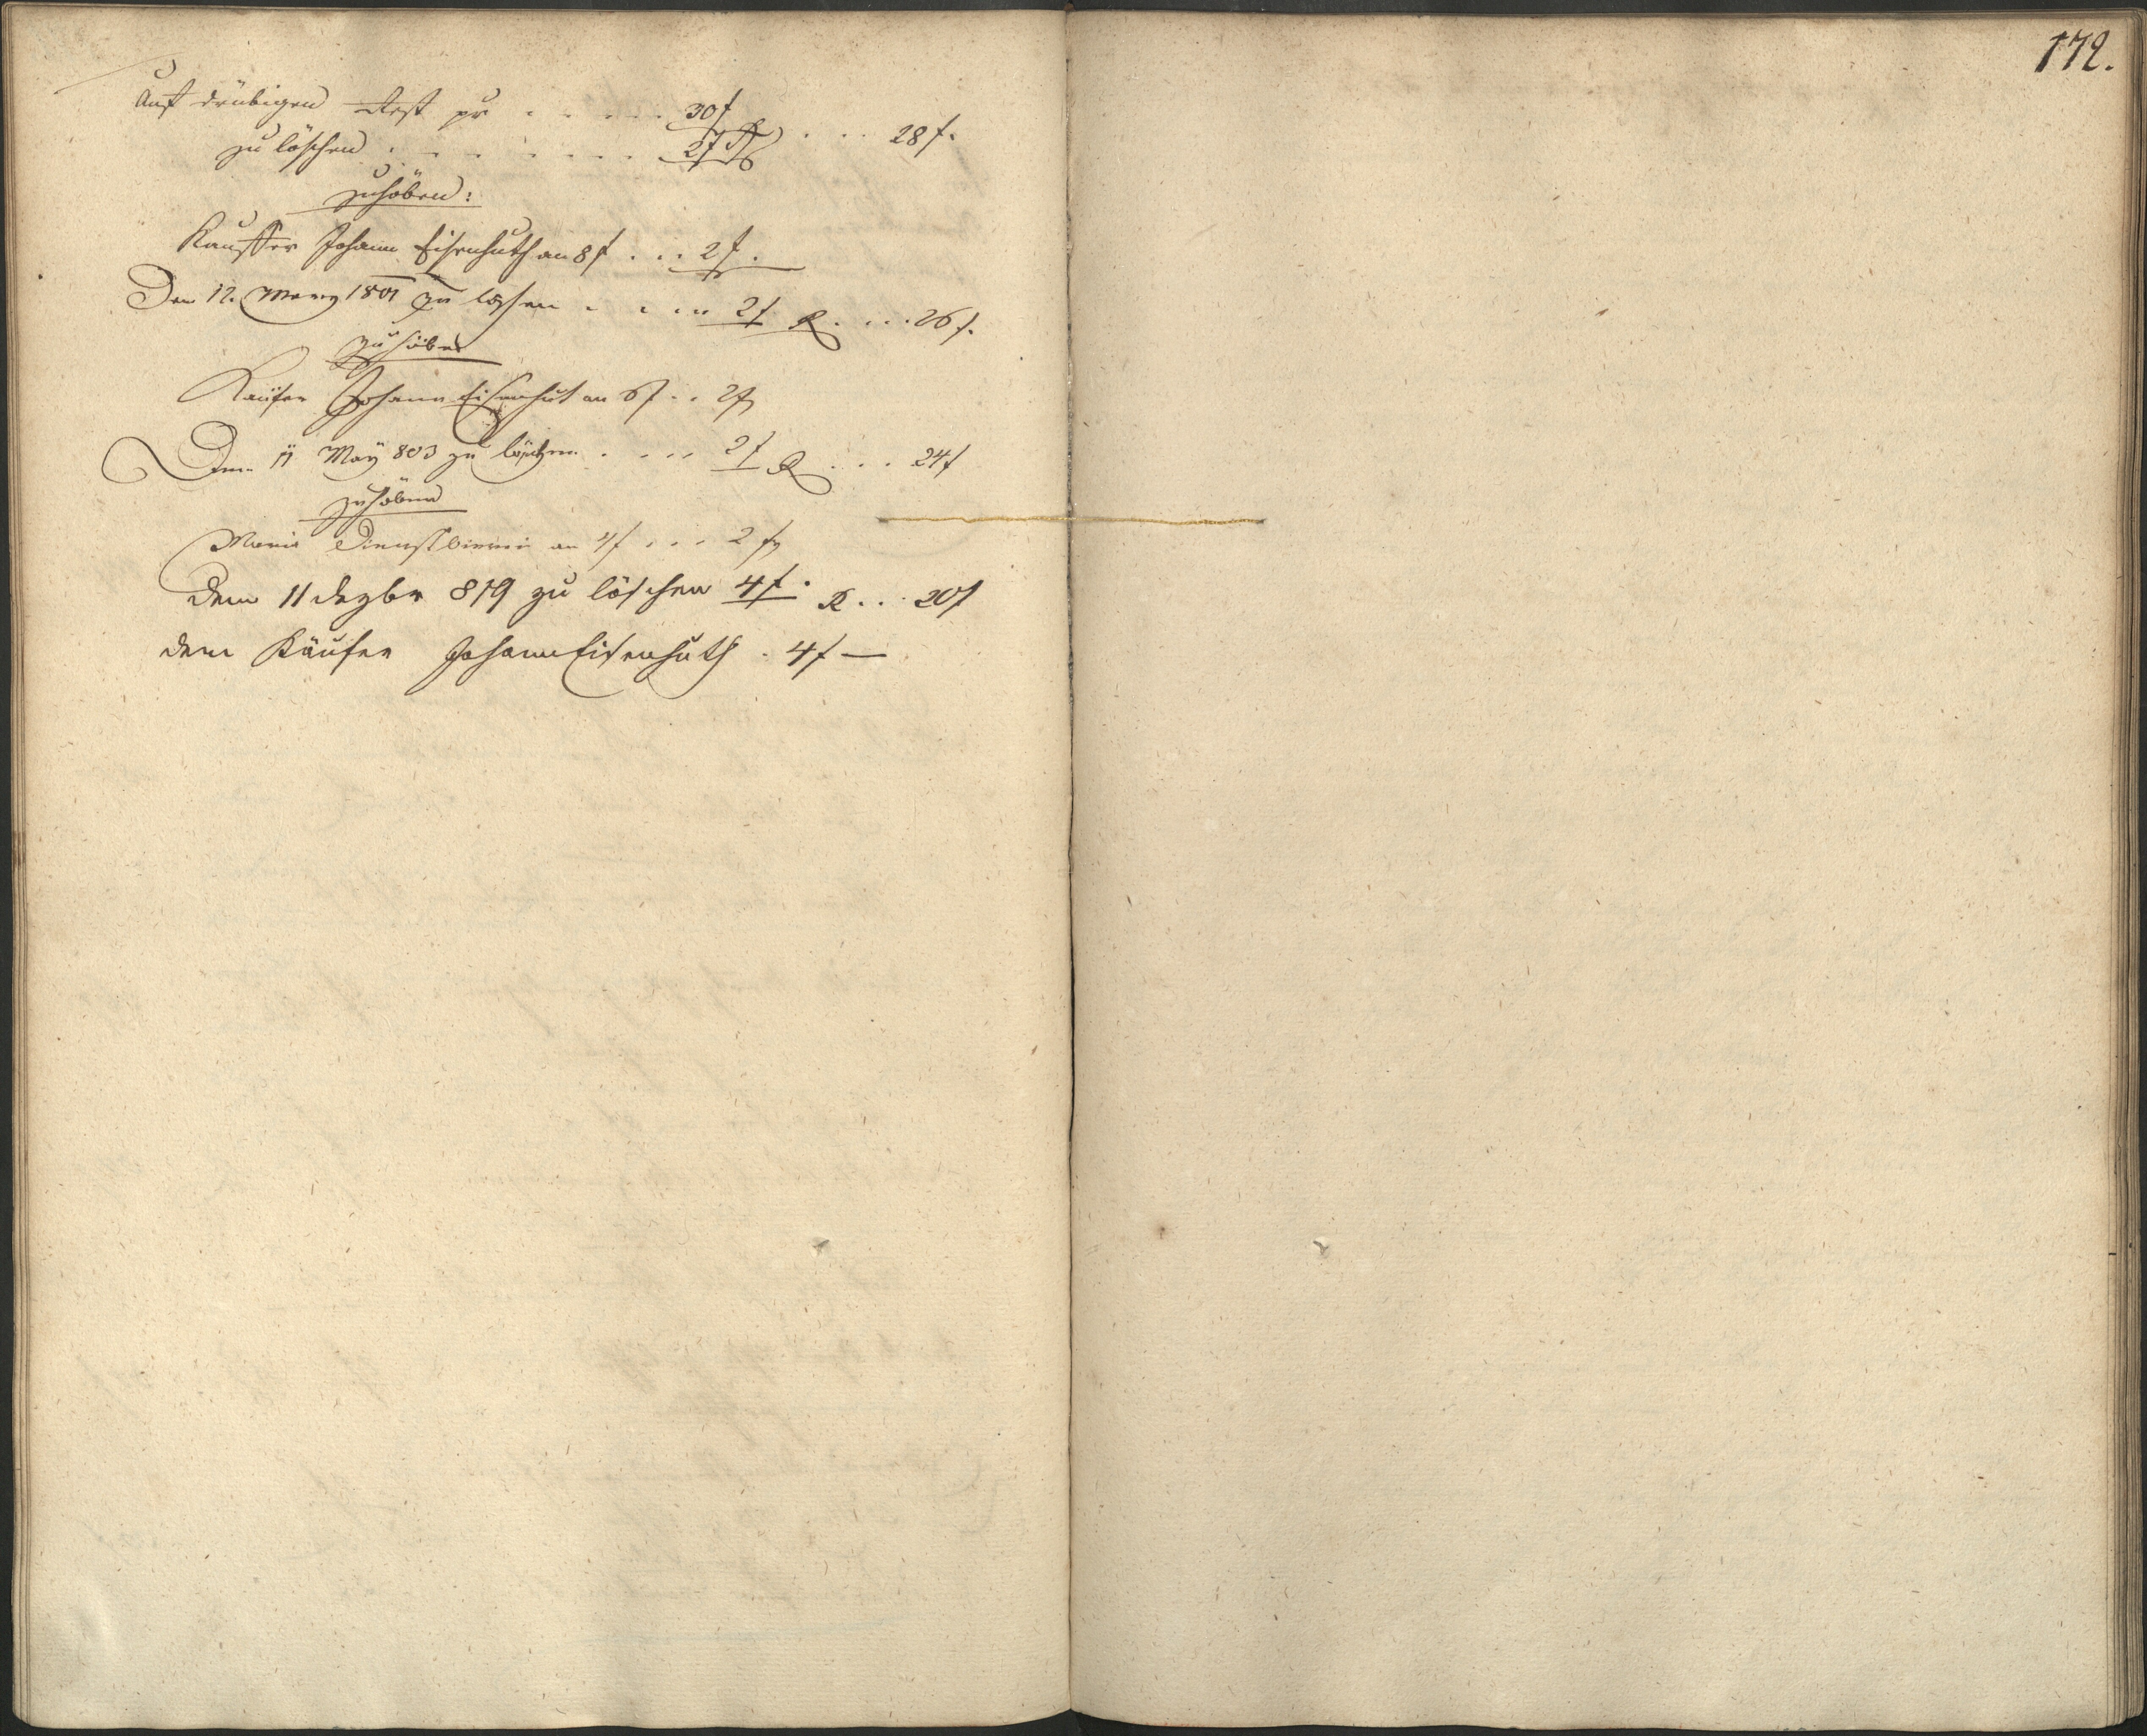 172.
Auf drübigen Rest pr . . . . . 30 f
zu löschen . . . . . . . 2 f R . . . 28 f.
zuhöben:
Kauffer Johann Eisenhuth an 8 f . . . 2 f.
Den 12. Merz 1801 zu löschen . . . . . 2 f R . . . . 26 f.
zu höben
Käufer Johann Eisenhut an 6 f . . 2 f
Den 11 May 803 zu löschen . . . . 2 f R . . . 24 f
zuhöben
Maria an 4 f . . . 2 f
dem 11 dezbr 819 zu löschen 4 f. R . . . 20 f
dem Käufer Johann Eisenhuth . 4 f —